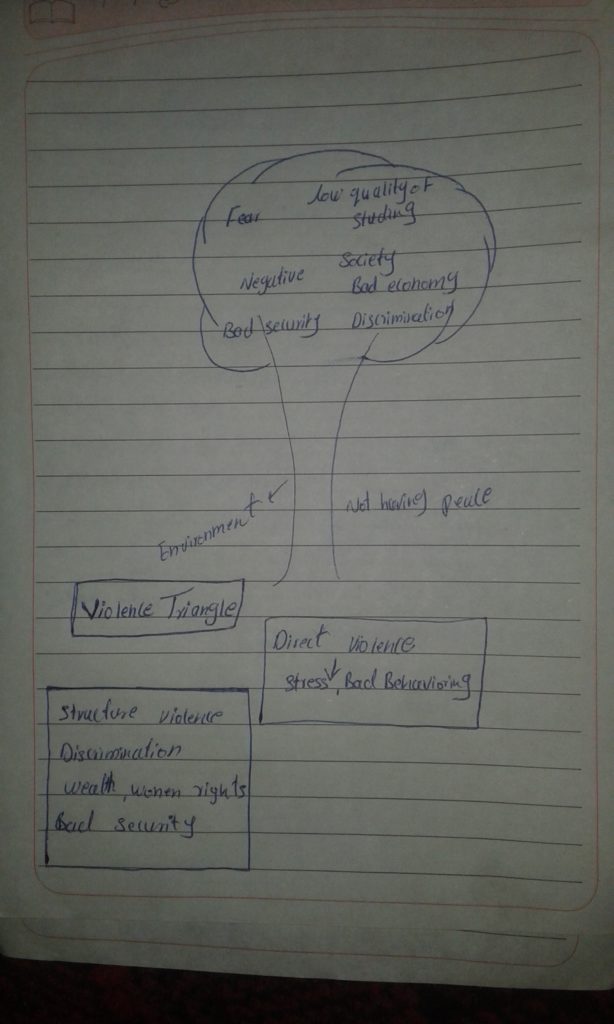 Fear
low quality of
studing
Society
Negative
Bad economy
Bad security
Discrimination
Environment
Not having peace
Violence Triangle
Direct Violence
Stress, Bad Behavioring
Structure Violence
Discrimination
Wealth, women rights
Bad Security